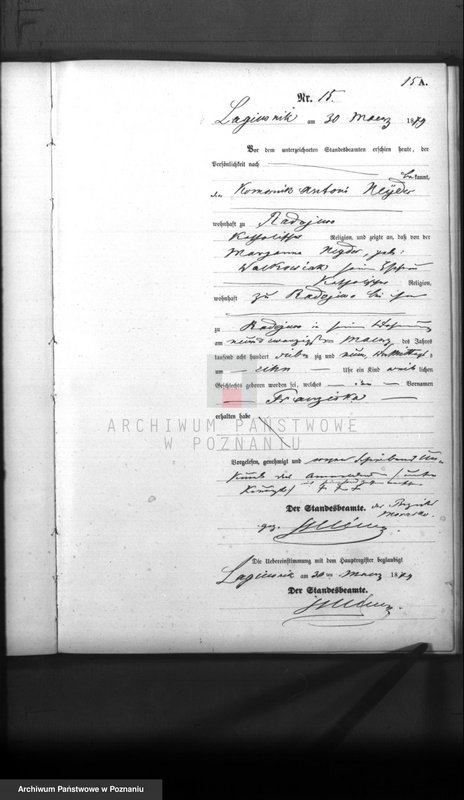 15 A.
Nr. 15.
Lagiewnik am 30 Maerz 1879
Vor dem unterzeichneten Standesbeamten erschien heute, der
Persönlichkeit nach
bekannt,
der Komornik Antoni Neyder
wohnhaft zu Radojewo
Katholischer Religion, und zeigte an, daß von der
Maryanna Neyder, geb:
Walkowiak seiner Ehefrau
Katholischer Religion,
wohnhaft zu Radojewo bei ihm
zu Radojewo in seiner Wohnung
am neunundzwanzigsten Maerz des Jahres
tausend acht hundert siebenzig und neun, Vormittags
um zehn Uhr ein Kind weiblichen
Geschlechts geboren worden sei, welches den Vornamen
Franziska
erhalten habe
ARCHIWUM PAŃSTWOWE
W POZNANIU
Vorgelesen, genehmigt und wegen Schreibens Un-
kunde des
† † †
Der Standesbeamte. des Bezirks
Morasko.
gez.
Die Uebereinstimmung mit dem Hauptregister beglaubigt
Lagiewnik am 30 ten Maerz 1879
Der Standesbeamte.
Archiwum Państwowe w Poznaniu